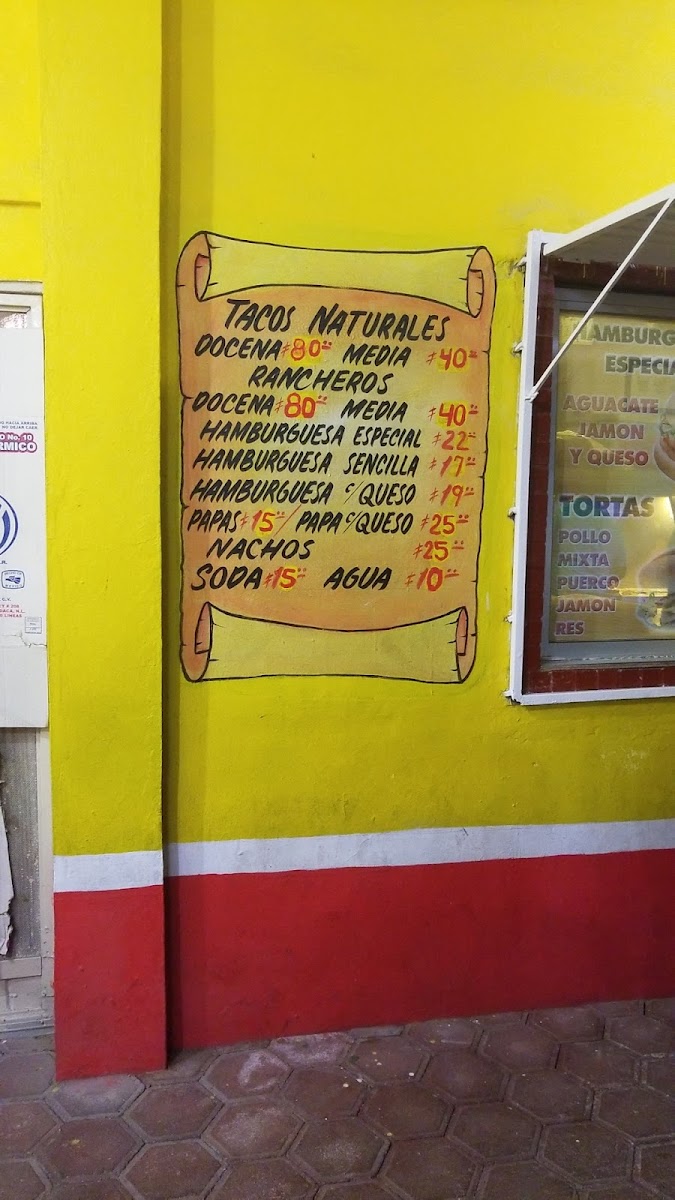 TACOS NATURALES
DOCENA $80.00 MEDIA $40.00
RANCHEROS
DOCENA $80.00 MEDIA $40.00
HAMBURGUESA ESPECIAL $22.00
HAMBURGUESA SENCILLA $17.00
HAMBURGUESA C/QUESO $19.00
PAPAS $15.00 / PAPA C/QUESO $25.00
NACHOS $25.00
SODA $15.00 AGUA $10.00
HAMBURG
ESPECIA
AGUACATE
JAMON
Y QUESO
TORTAS
POLLO
MIXTA
PUERCO
JAMON
RES
No. 10
RMICO